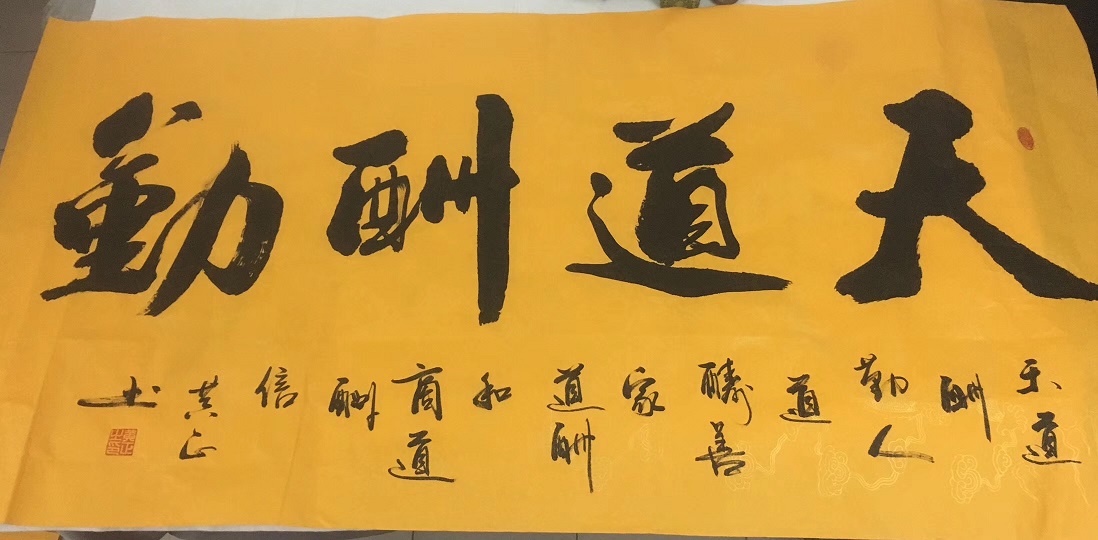 天道酬勤
天道
酬
勤人
道
醻善
家
道酬
和
商道
酬
信
黄正
书